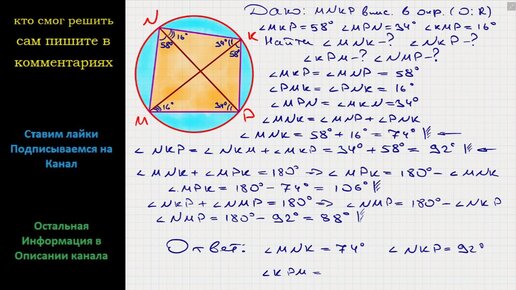 кто смог решить
сам пишите в
комментариях
Ставим лайки
Подписываемся на
Канал
Остальная
Информация в
Описании канала
N
16°
58°
34°
K
58°
M
16°
34°
P
Дано: MNKP впис. в окр. (O; R)
∠MKP = 58° ∠MPN = 34° ∠KMP = 16°
Найти ∠MNK - ? ∠NKP - ?
∠KPM - ? ∠NMP - ?
∠MKP = ∠MNP = 58°
∠PMK = ∠PNK = 16°
∠MPN = ∠MKN = 34°
∠MNK = ∠MNP + ∠PNK
∠MNK = 58° + 16° = 74°
∠NKP = ∠NKM + ∠MKP = 34° + 58° = 92°
∠MNK + ∠MPK = 180° => ∠MPK = 180° - ∠MNK
∠MPK = 180° - 74° = 106°
∠NKP + ∠NMP = 180° => ∠NMP = 180° - ∠NKP
∠NMP = 180° - 92° = 88°
Ответ: ∠MNK = 74° ∠NKP = 92°
∠KPM =